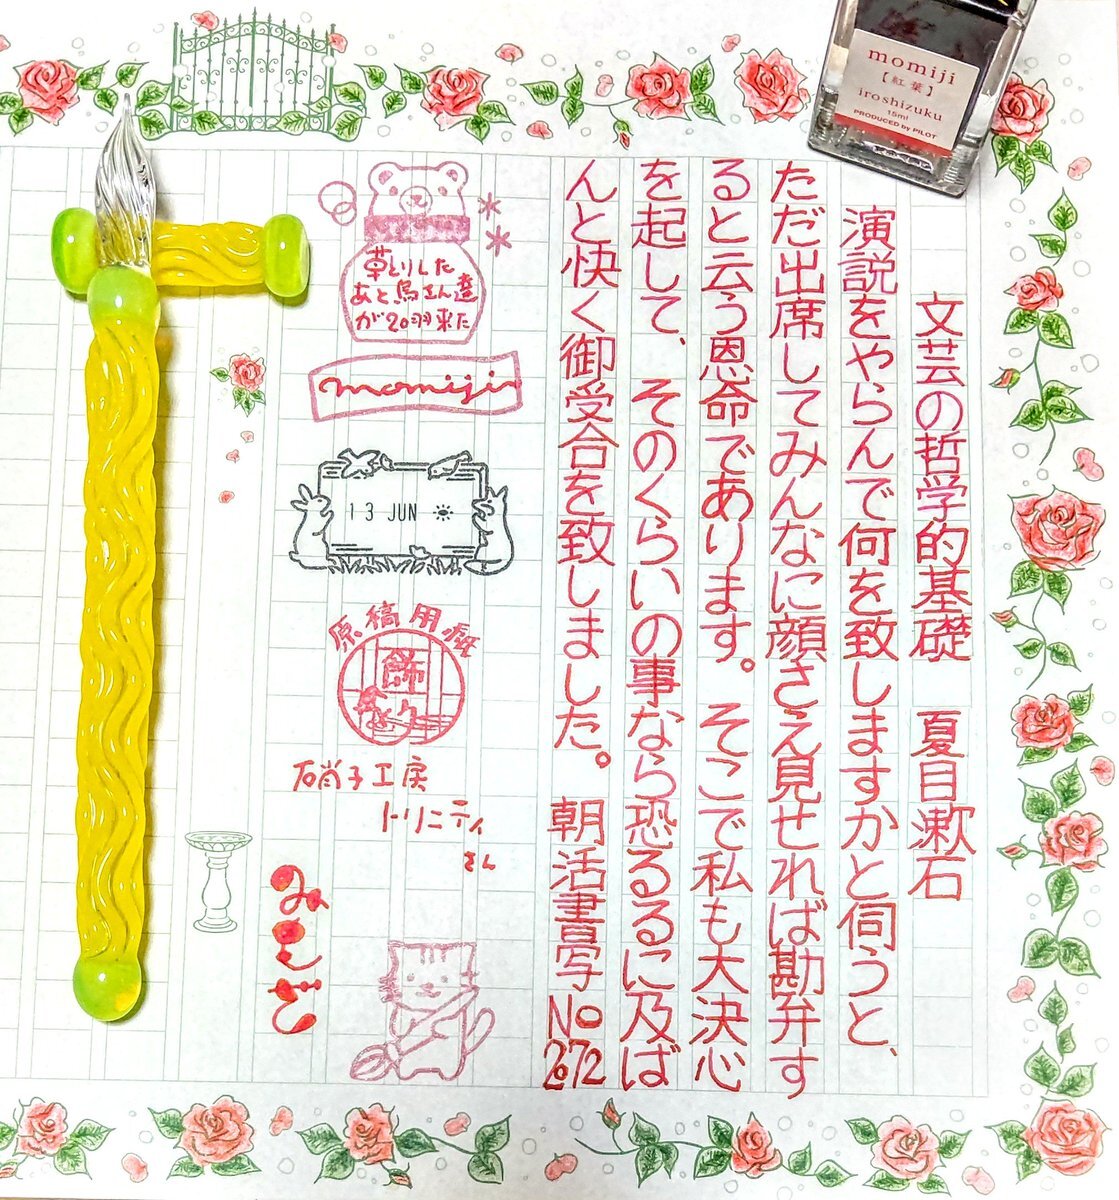 momiji
【紅葉】
iroshizuku
15ml
PRODUCED by PILOT
文芸の哲学的基礎　夏目漱石
演説をやらんで何を致しますかと伺うと、
ただ出席してみんなに顔さえ見せれば勘弁す
ると云う恩命であります。そこで私も大決心
を起して、そのくらいの事なら恐るるに及ば
んと快く御受合を致しました。朝活書写No2072
草とりした
あと鳥さん達
が20羽来た
momiji
13 JUN
原稿用紙
飾
硝子工房
トリニティ
さん
みもざ